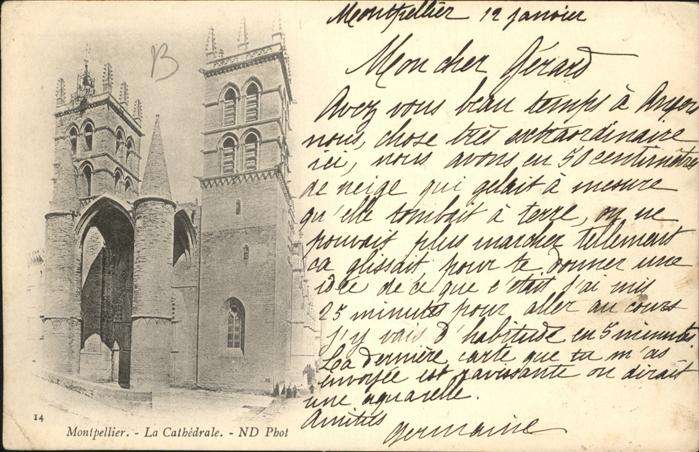 Montpellier 12 janvier
Mon cher Gérard
Avez vous beau temps à Angers
nous, chose très extraordinaire
ici, nous avons eu 50 centimètres
de neige qui gelait à mesure
qu'elle tombait à terre, on ne
pouvait plus marcher tellement
ça glissait pour te donner une
idée de ce que c'était j'ai mis
25 minutes pour aller au cours
j'y vais d'habitude en 5 minutes.
La dernière carte que tu m'as
envoyée est ravissante on dirait
une aquarelle.
Amitiés
Germaine
B
14
Montpellier. - La Cathédrale. - ND Phot